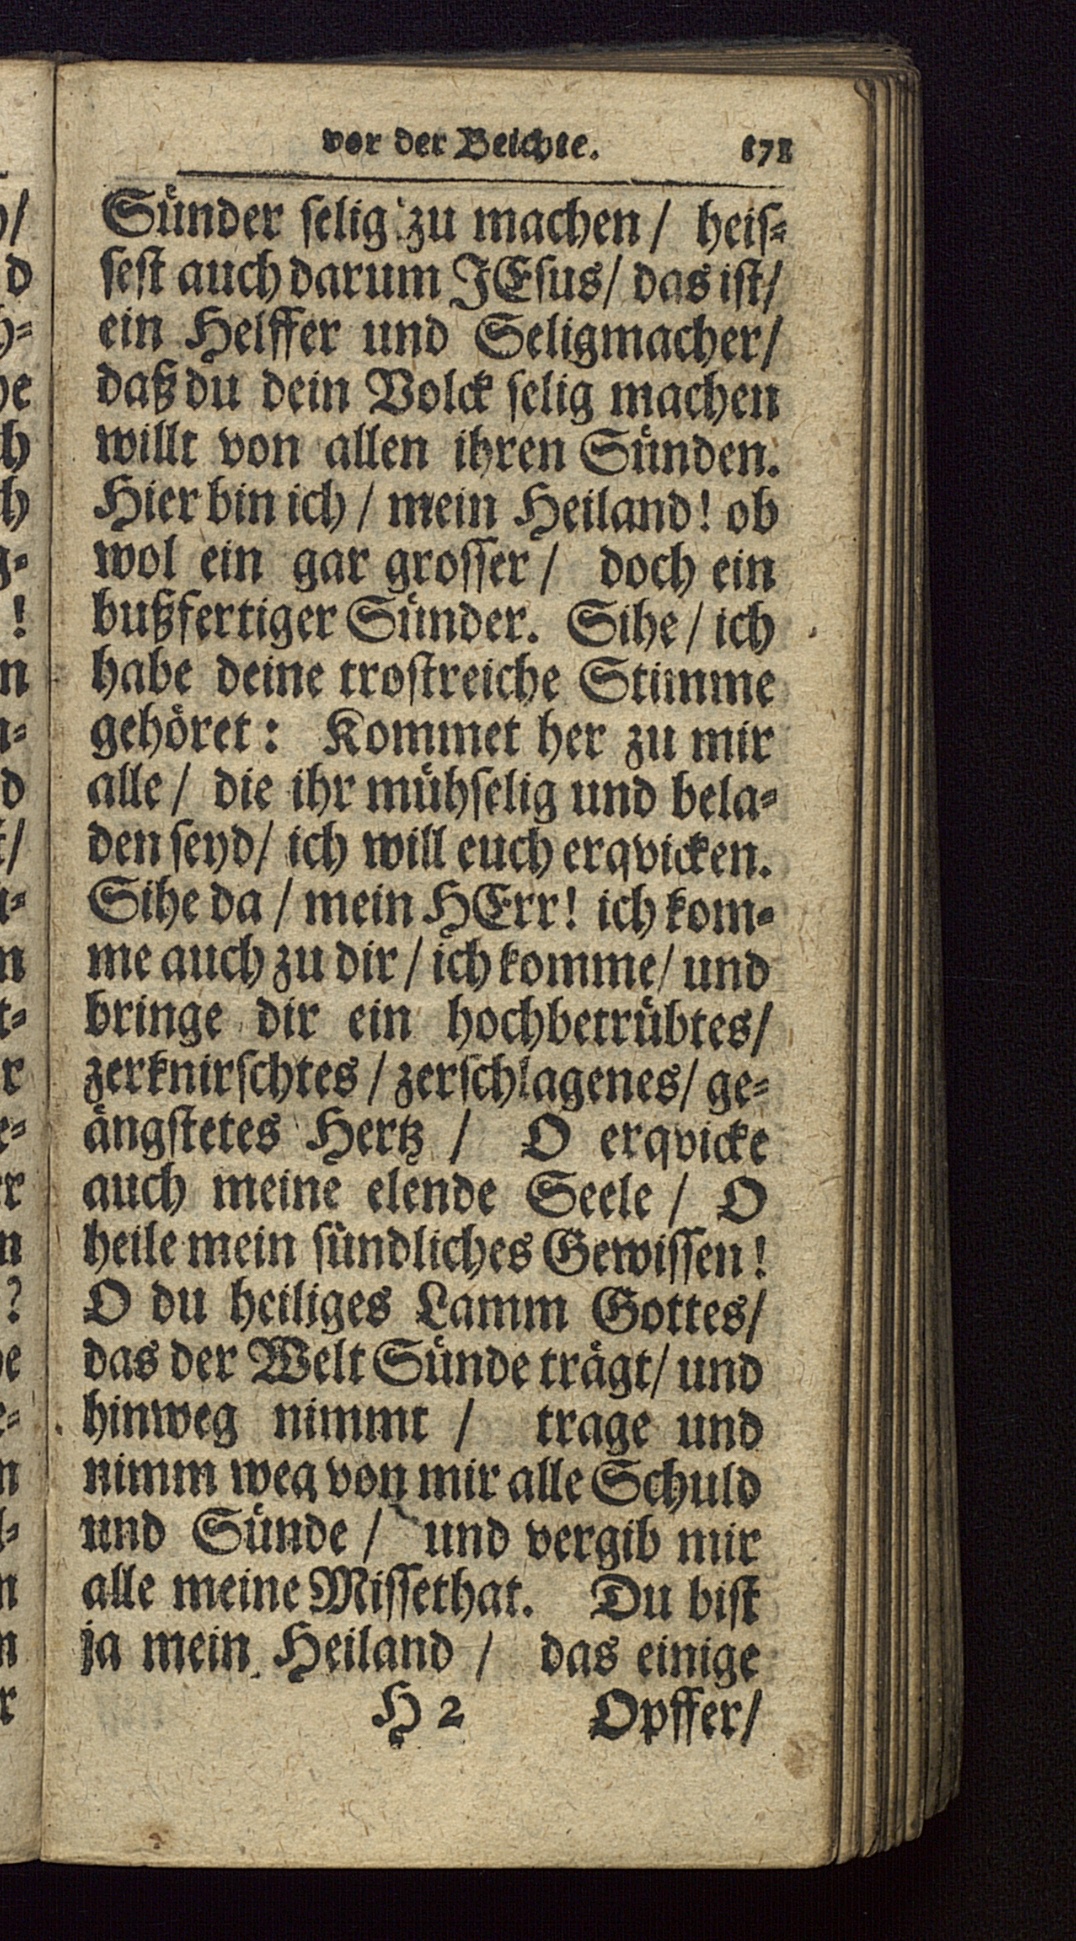 vor der Beichte. 171
Sünder selig zu machen / heis-
sest auch darum JEsus / das ist /
ein Helffer und Seligmacher /
daß du dein Volck selig machen
willt von allen ihren Sünden.
Hier bin ich / mein Heiland! ob
wol ein gar grosser / doch ein
bußfertiger Sünder. Sihe / ich
habe deine trostreiche Stimme
gehöret: Kommet her zu mir
alle / die ihr mühselig und bela-
den seyd / ich will euch erqvicken.
Sihe da / mein HErr! ich kom-
me auch zu dir / ich komme / und
bringe dir ein hochbetrübtes /
zerknirschtes / zerschlagenes / ge-
ängstetes Hertz / O erqvicke
auch meine elende Seele / O
heile mein sündliches Gewissen!
O du heiliges Lamm Gottes /
das der Welt Sünde trägt / und
hinweg nimmt / trage und
nimm weg von mir alle Schuld
und Sünde / und vergib mir
alle meine Missethat. Du bist
ja mein Heiland / das einige
H 2 Opffer /